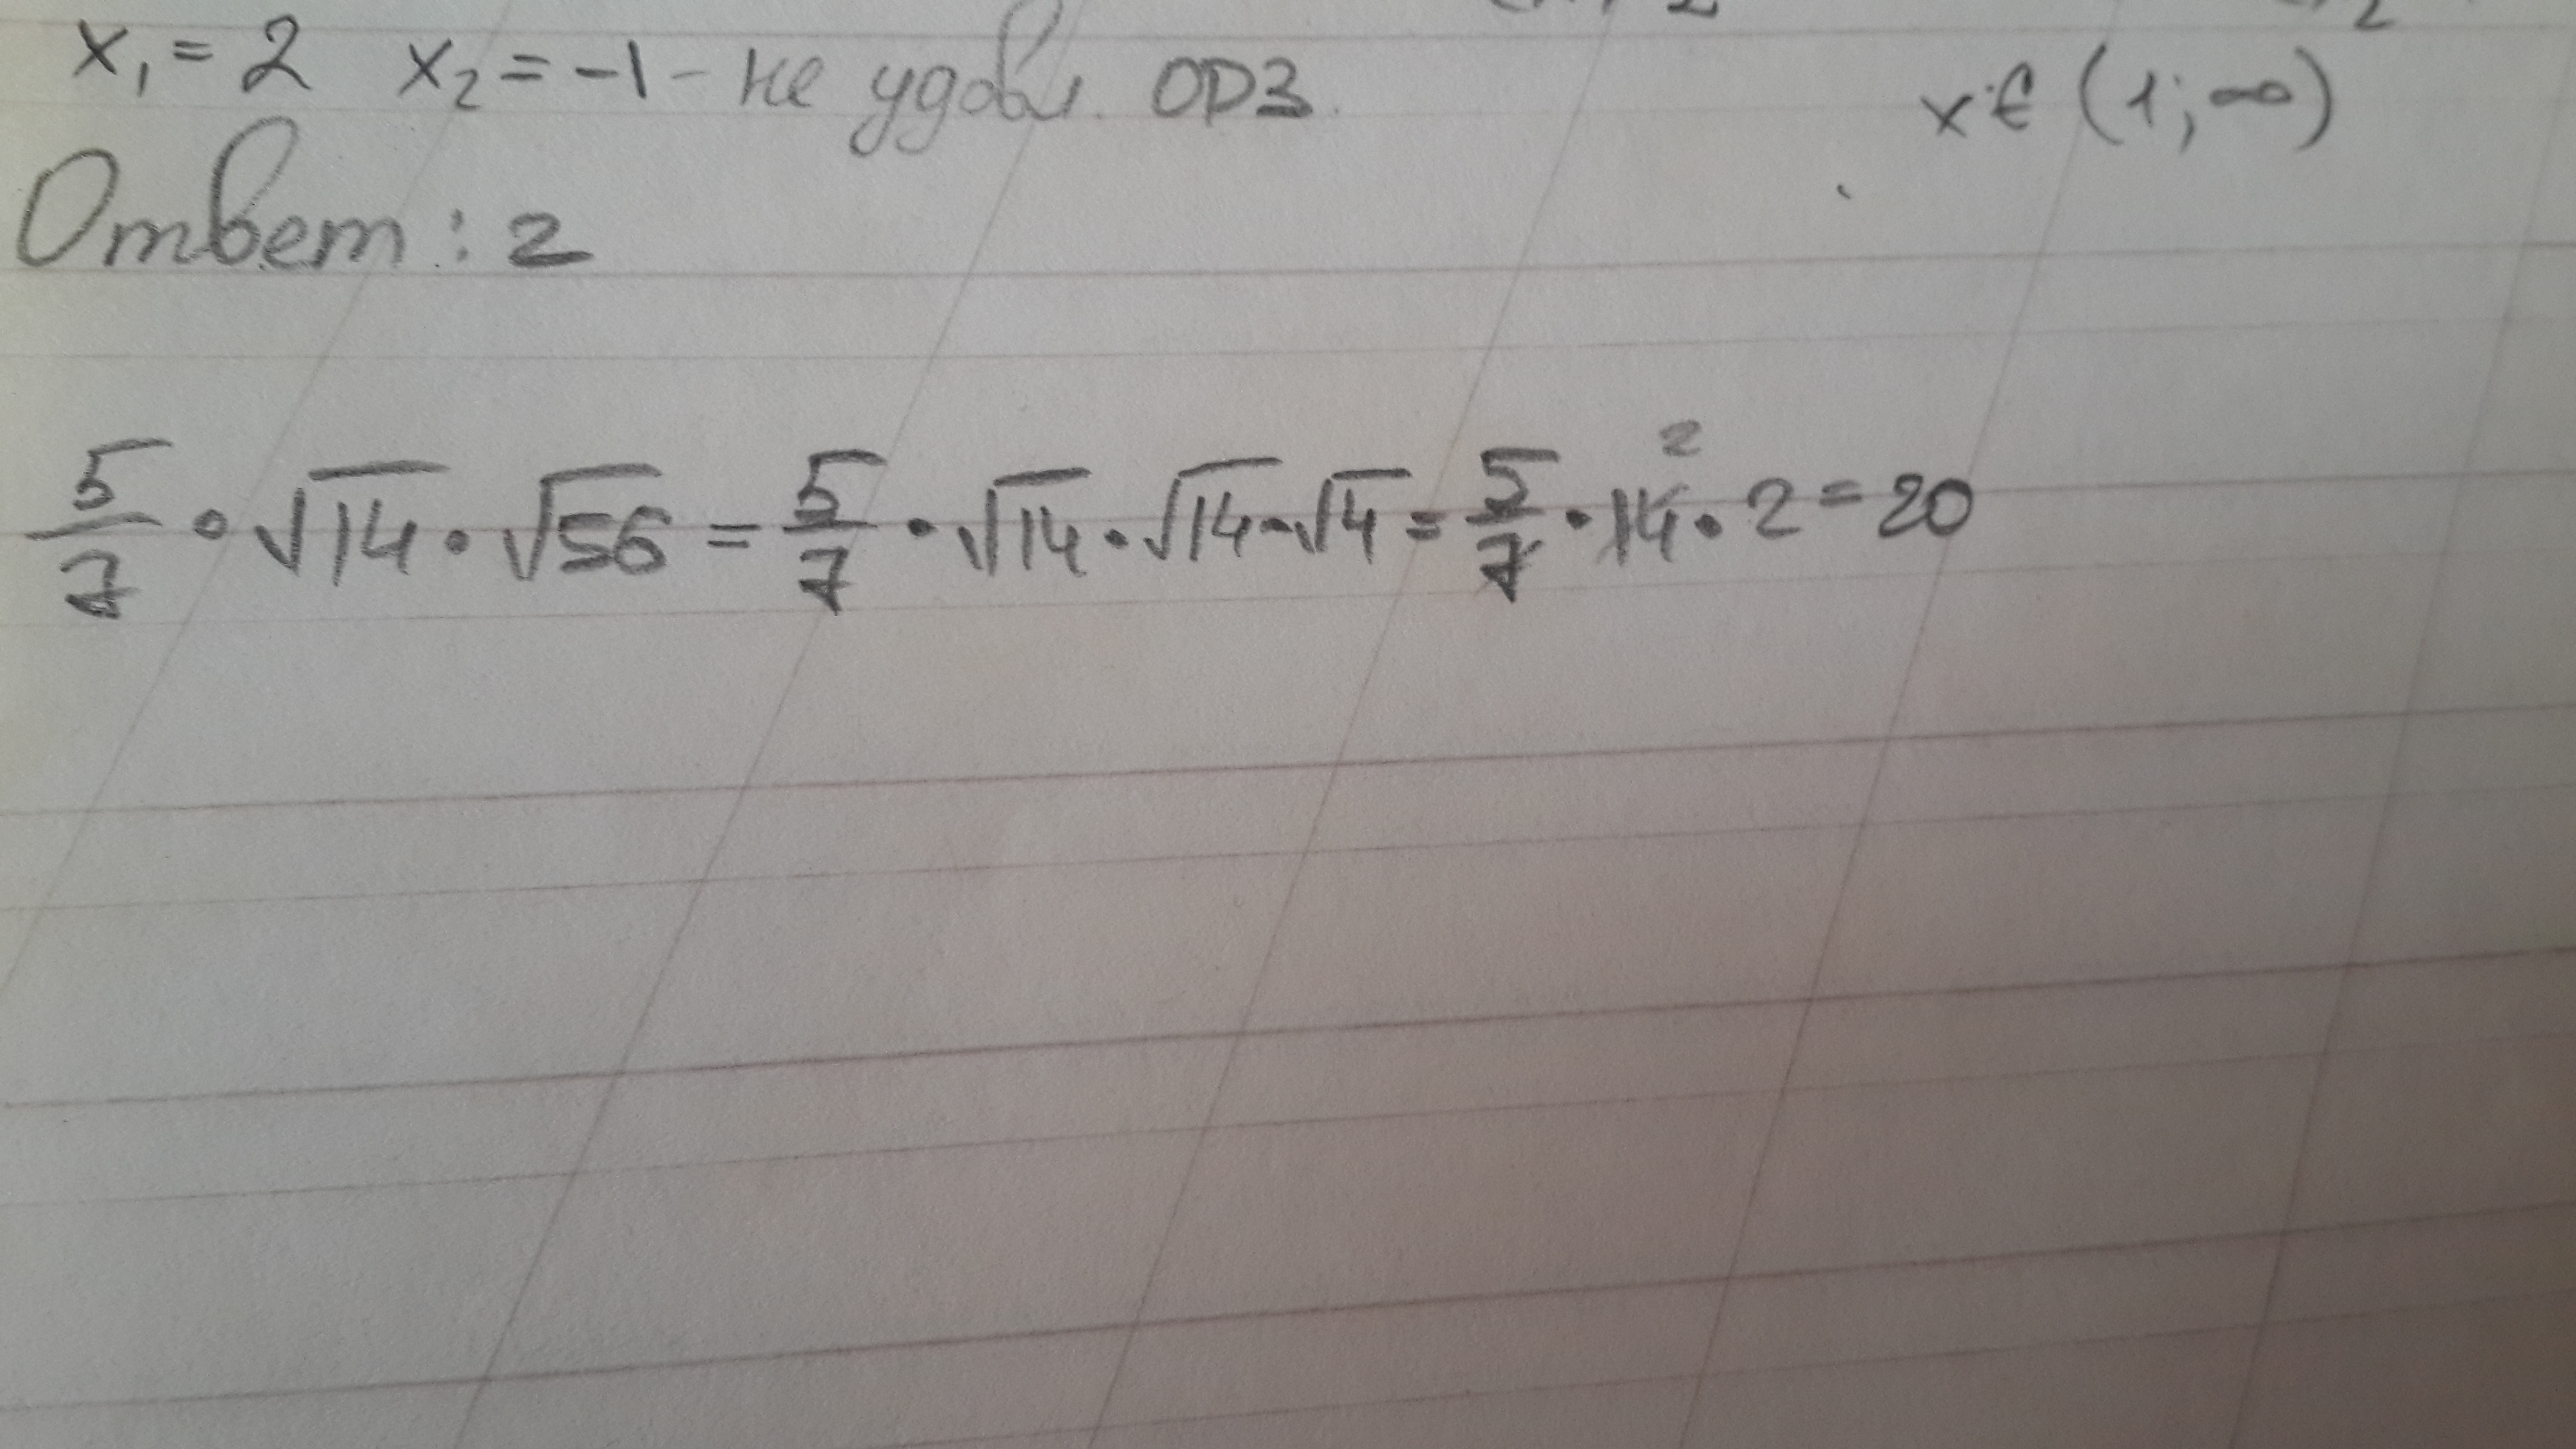 x₁ = 2 x₂ = -1 - не удовл. ОДЗ.
x ∈ (1; ∞)
Ответ: 2
5/7 · √14 · √56 = 5/7 · √14 · √14 · √4 = 5/7 · 14² · 2 = 20